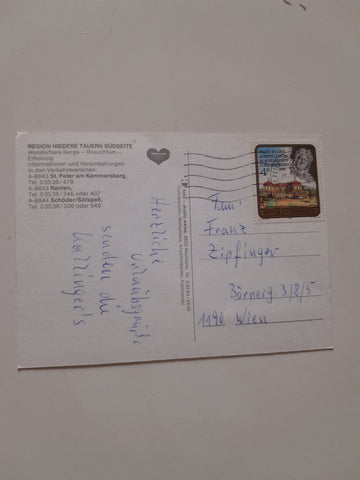 REGION NIEDERE TAUERN SÜDSEITE
Wanderbare Berge – Brauchtum –
Erholung
Informationen und Veranstaltungen
in den Verkehrsvereinen:
A-8843 St. Peter am Kammersberg,
Tel. 03536/479
A-8853 Ranten,
Tel. 03535/246 oder 407
A-8844 Schöder/Sölkpaß,
Tel. 03536/336 oder 549
Herzliche
Urlaubsgrüße
senden die
Fam:
Franz
Zipfinger
Börnerg. 3/8/5
1190 Wien